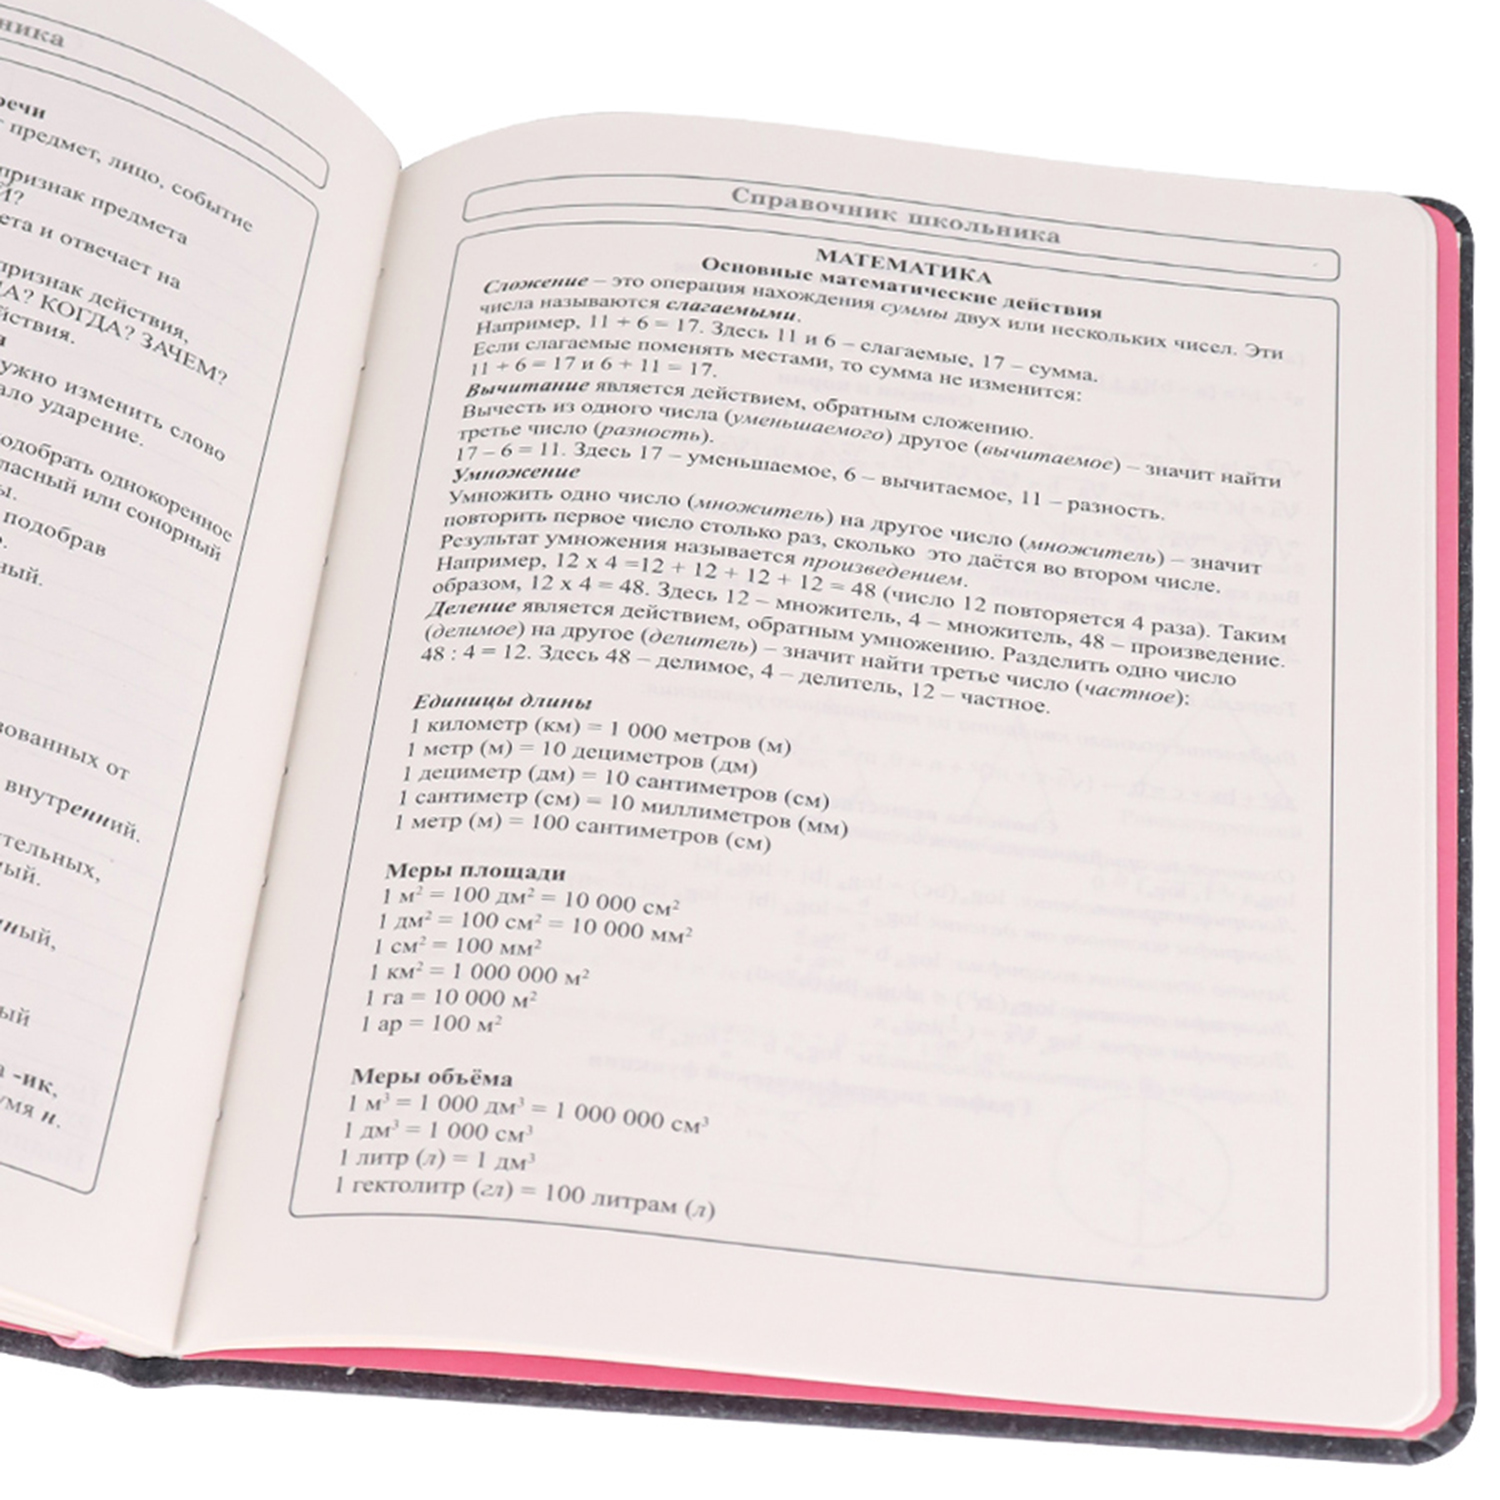 ника
речи
предмет, лицо, событие
признак предмета
Й?
ета и отвечает на
признак действия,
ДА? КОГДА? ЗАЧЕМ?
йствия.
нужно изменить слово
ало ударение.
подобрать однокоренное
гласный или сонорный
ы.
подобрав
ный.
зованных от
внутренний.
тельных,
ный.
нный,
ый
а -ик,
умя н.
Справочник школьника
МАТЕМАТИКА
Основные математические действия
Сложение – это операция нахождения суммы двух или нескольких чисел. Эти
числа называются слагаемыми.
Например, 11 + 6 = 17. Здесь 11 и 6 – слагаемые, 17 – сумма.
Если слагаемые поменять местами, то сумма не изменится:
11 + 6 = 17 и 6 + 11 = 17.
Вычитание является действием, обратным сложению.
Вычесть из одного числа (уменьшаемого) другое (вычитаемое) – значит найти
третье число (разность).
17 – 6 = 11. Здесь 17 – уменьшаемое, 6 – вычитаемое, 11 – разность.
Умножение
Умножить одно число (множитель) на другое число (множитель) – значит
повторить первое число столько раз, сколько это даётся во втором числе.
Результат умножения называется произведением.
Например, 12 х 4 =12 + 12 + 12 + 12 = 48 (число 12 повторяется 4 раза). Таким
образом, 12 х 4 = 48. Здесь 12 – множитель, 4 – множитель, 48 – произведение.
Деление является действием, обратным умножению. Разделить одно число
(делимое) на другое (делитель) – значит найти третье число (частное):
48 : 4 = 12. Здесь 48 – делимое, 4 – делитель, 12 – частное.
Единицы длины
1 километр (км) = 1 000 метров (м)
1 метр (м) = 10 дециметров (дм)
1 дециметр (дм) = 10 сантиметров (см)
1 сантиметр (см) = 10 миллиметров (мм)
1 метр (м) = 100 сантиметров (см)
Меры площади
1 м² = 100 дм² = 10 000 см²
1 дм² = 100 см² = 10 000 мм²
1 см² = 100 мм²
1 км² = 1 000 000 м²
1 га = 10 000 м²
1 ар = 100 м²
Меры объёма
1 м³ = 1 000 дм³ = 1 000 000 см³
1 дм³ = 1 000 см³
1 литр (л) = 1 дм³
1 гектолитр (гл) = 100 литрам (л)